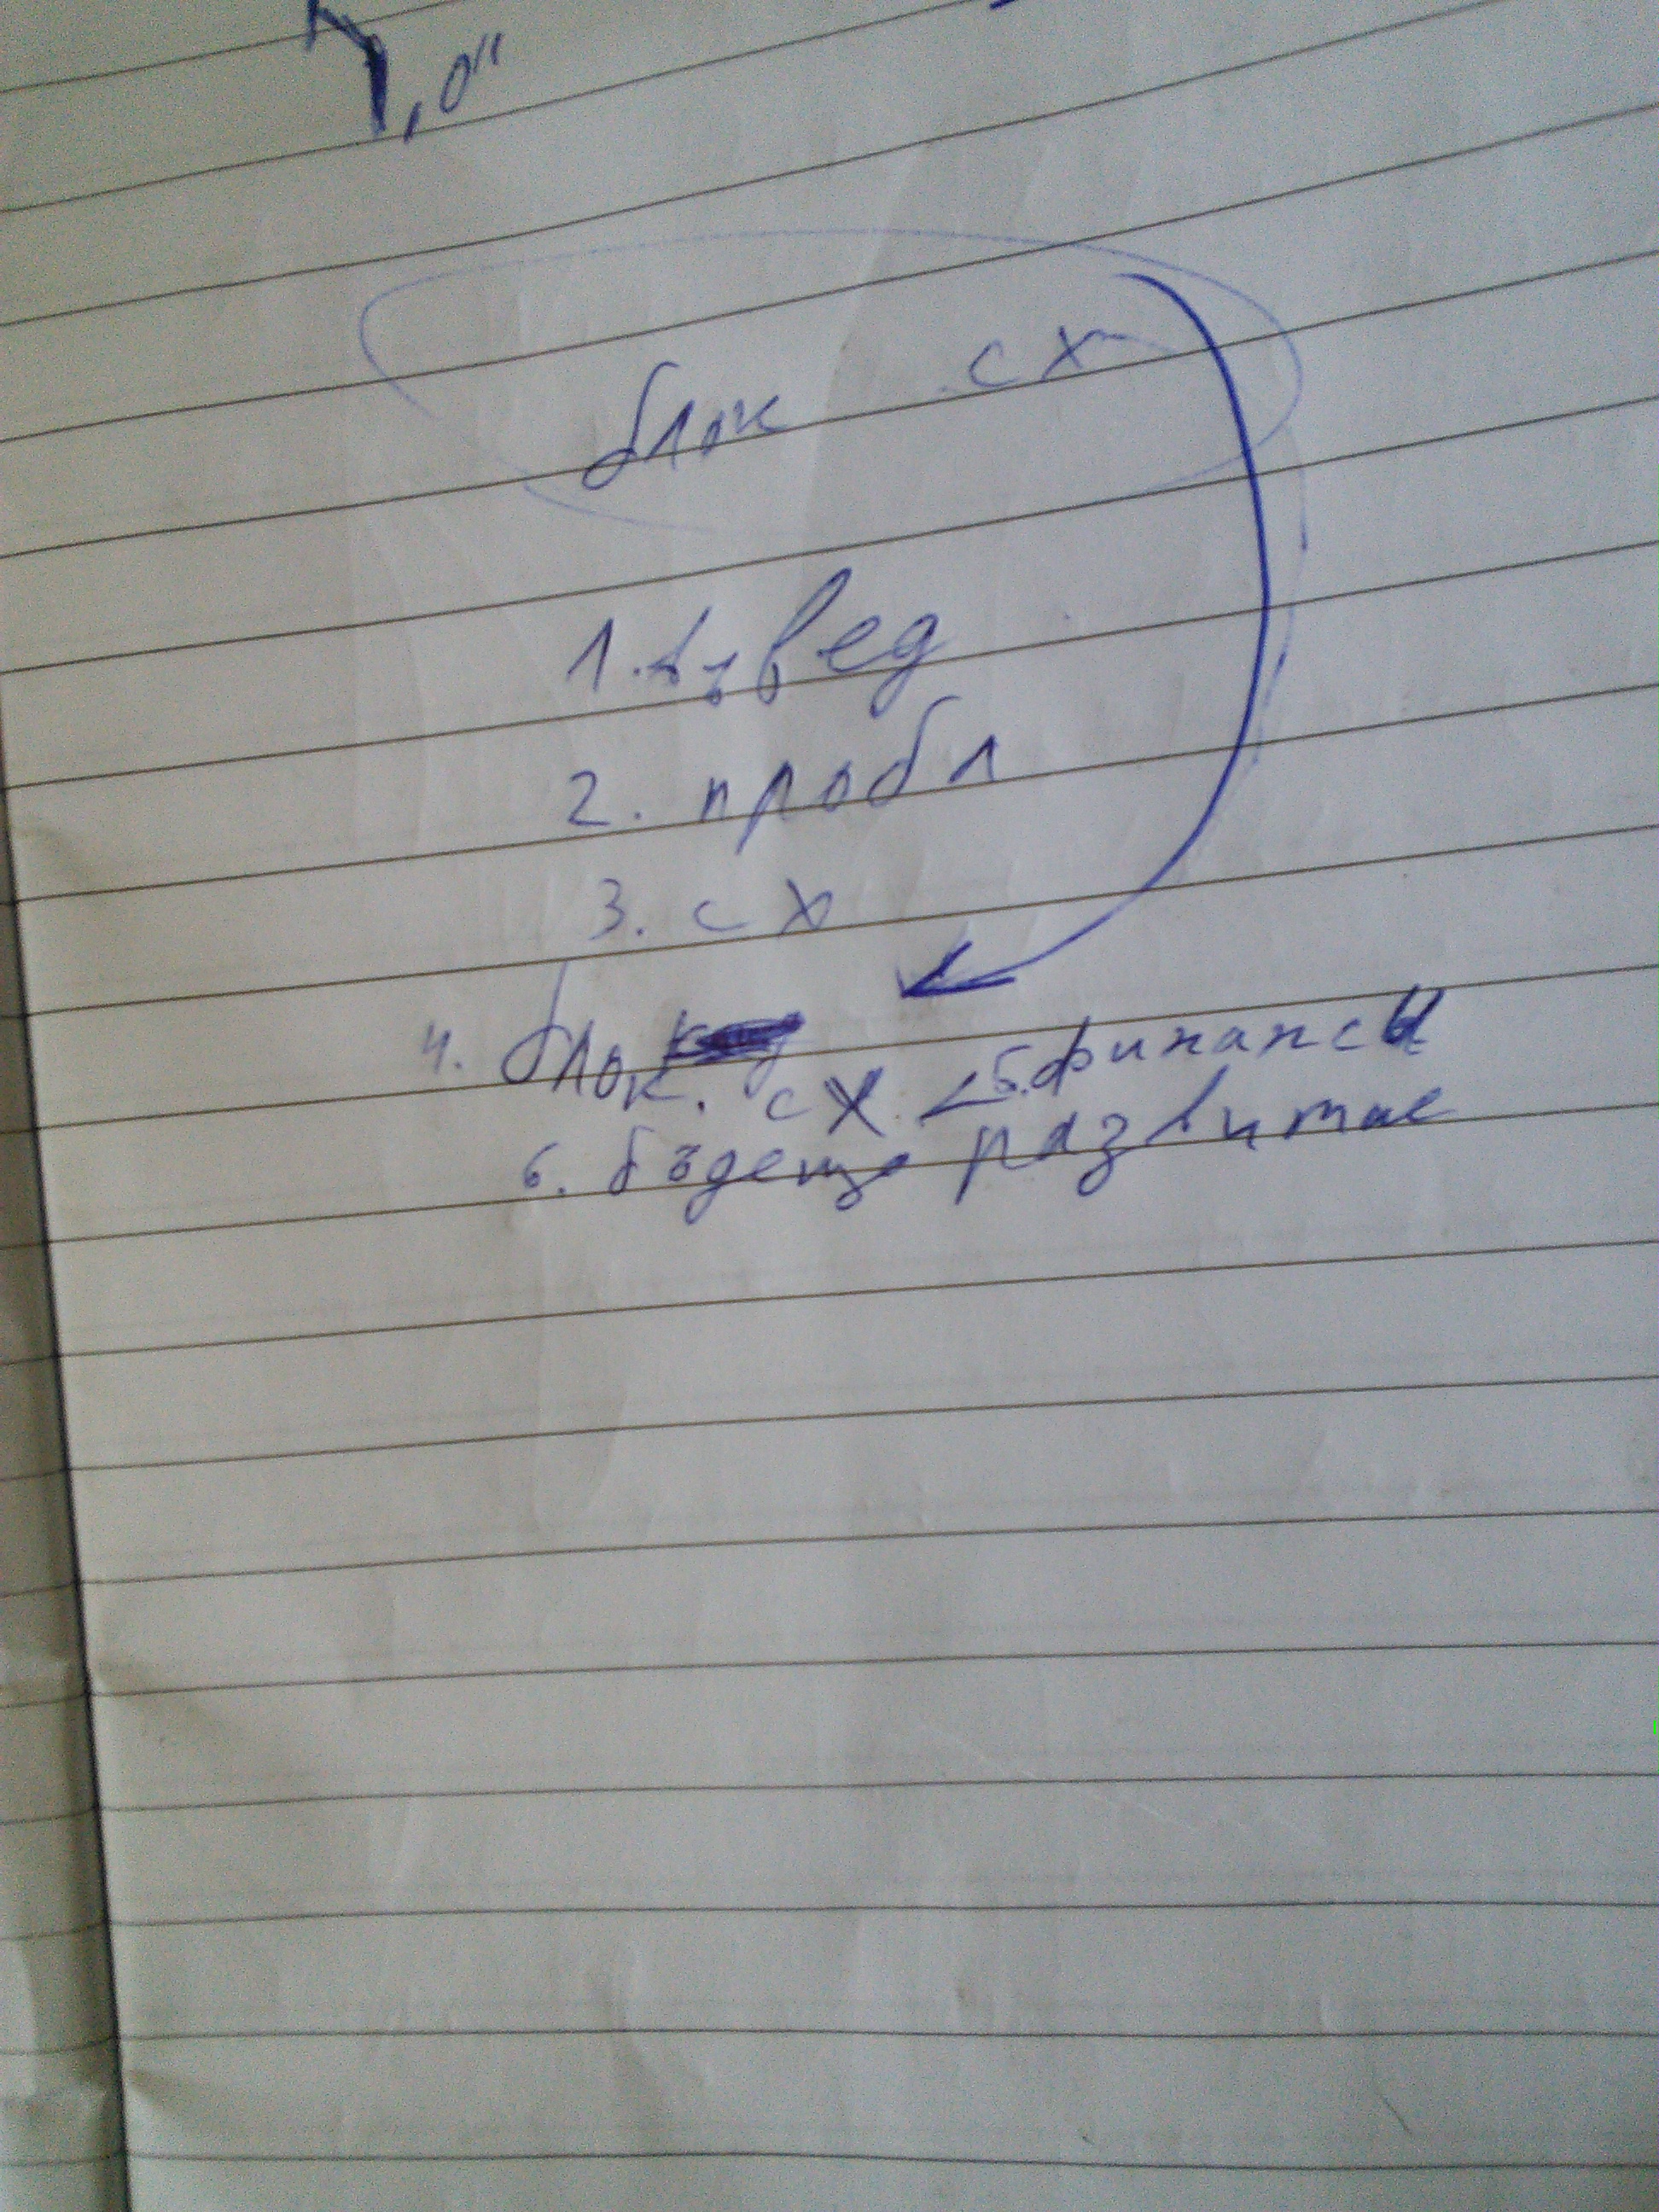 ,0"
блок сх
1. въвед
2. пробл
3. сх
4. блок. сх 5. финанси
6. бъдещо развитие